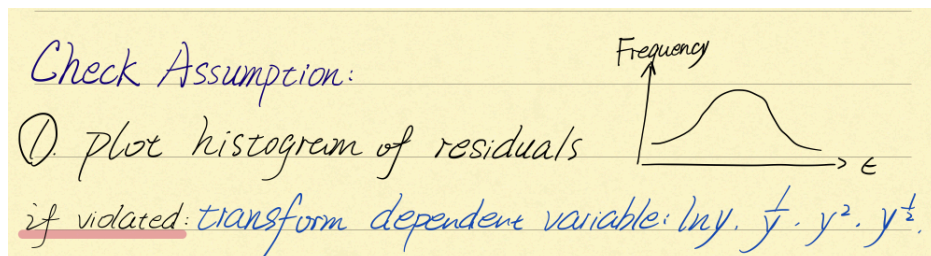 Check Assumption:
Frequency
①. plot histogram of residuals
ϵ
if violated: transform dependent variable: lny. 1/y. y². y^½.